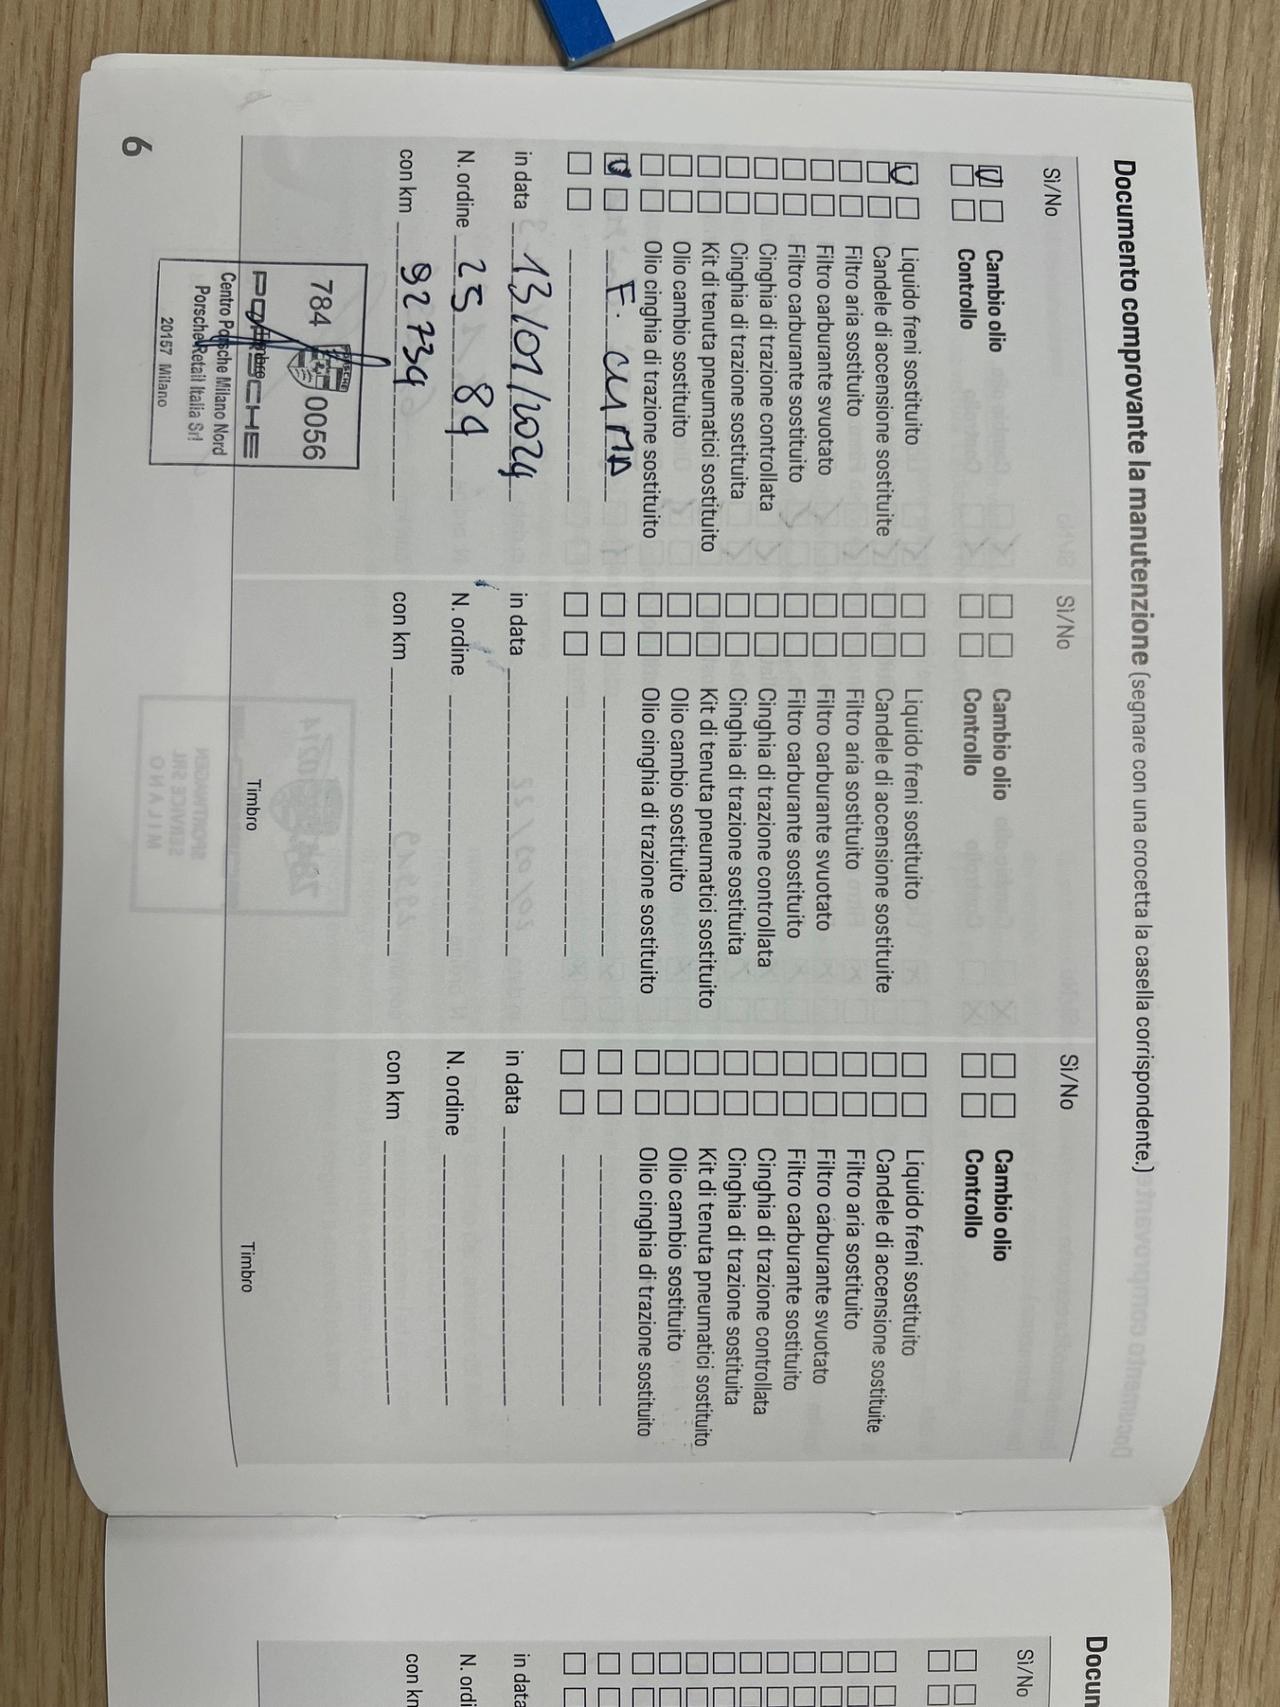 Documento comprovante la manutenzione (segnare con una crocetta la casella corrispondente.)
Sì/No
Cambio olio
Controllo
Liquido freni sostituito
Candele di accensione sostituite
Filtro aria sostituito
Filtro carburante svuotato
Filtro carburante sostituito
Cinghia di trazione controllata
Cinghia di trazione sostituita
Kit di tenuta pneumatici sostituito
Olio cambio sostituito
Olio cinghia di trazione sostituito
F. CLIMA
in data 13/01/2024
N. ordine 25 84
con km 92734
784 0056
PORSCHE
Centro Porsche Milano Nord
Porsche Retail Italia Srl
20157 Milano
Sì/No
Cambio olio
Controllo
Liquido freni sostituito
Candele di accensione sostituite
Filtro aria sostituito
Filtro carburante svuotato
Filtro carburante sostituito
Cinghia di trazione controllata
Cinghia di trazione sostituita
Kit di tenuta pneumatici sostituito
Olio cambio sostituito
Olio cinghia di trazione sostituito
in data
N. ordine
con km
Timbro
Sì/No
Cambio olio
Controllo
Liquido freni sostituito
Candele di accensione sostituite
Filtro aria sostituito
Filtro carburante svuotato
Filtro carburante sostituito
Cinghia di trazione controllata
Cinghia di trazione sostituita
Kit di tenuta pneumatici sostituito
Olio cambio sostituito
Olio cinghia di trazione sostituito
in data
N. ordine
con km
Timbro
6
Docun
Sì/No
in data
N. ordi
con kn